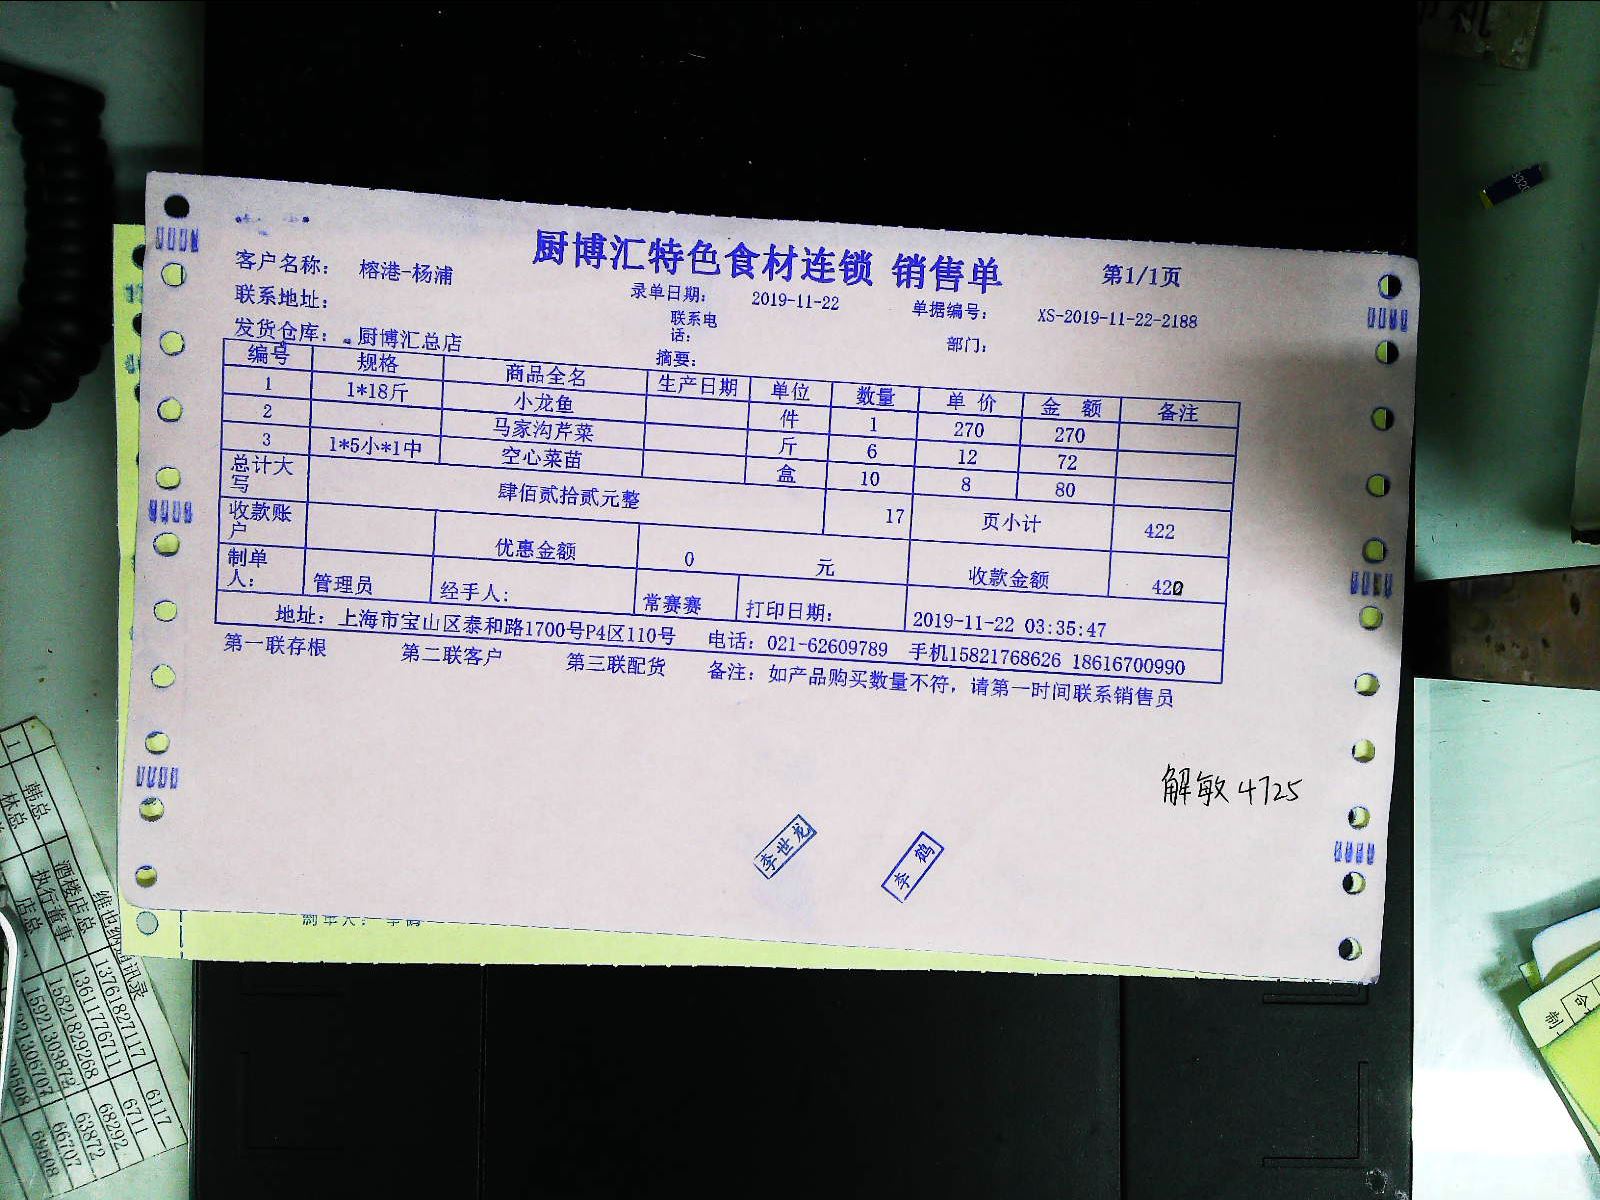 厨博汇特色食材连锁 销售单
第1/1页
客户名称： 榕港-杨浦
录单日期： 2019-11-22 单据编号： XS-2019-11-22-2188
联系地址：
联系电话：
部门：
发货仓库： 厨博汇总店
摘要：
编号 规格 商品全名 生产日期 单位 数量 单 价 金 额 备注
1 1*18斤 小龙鱼 件 1 270 270
2 马家沟芹菜 斤 6 12 72
3 1*5小*1中 空心菜苗 盒 10 8 80
总计大写 肆佰贰拾贰元整 17 页小计 422
收款账户 优惠金额 0 元 收款金额
制单人： 管理员 经手人： 常赛赛 打印日期： 2019-11-22 03:35:47
地址：上海市宝山区泰和路1700号P4区110号 电话：021-62609789 手机15821768626 18616700990
第一联存根 第二联客户 第三联配货 备注：如产品购买数量不符，请第一时间联系销售员
解敏 4725
李世龙
李鹤
韩总 酒楼店总 13761827117 6117
林总 执行董事 13617776711 6711
店总 15821829268 68292
15921303872 63872
66707
69508
制
合